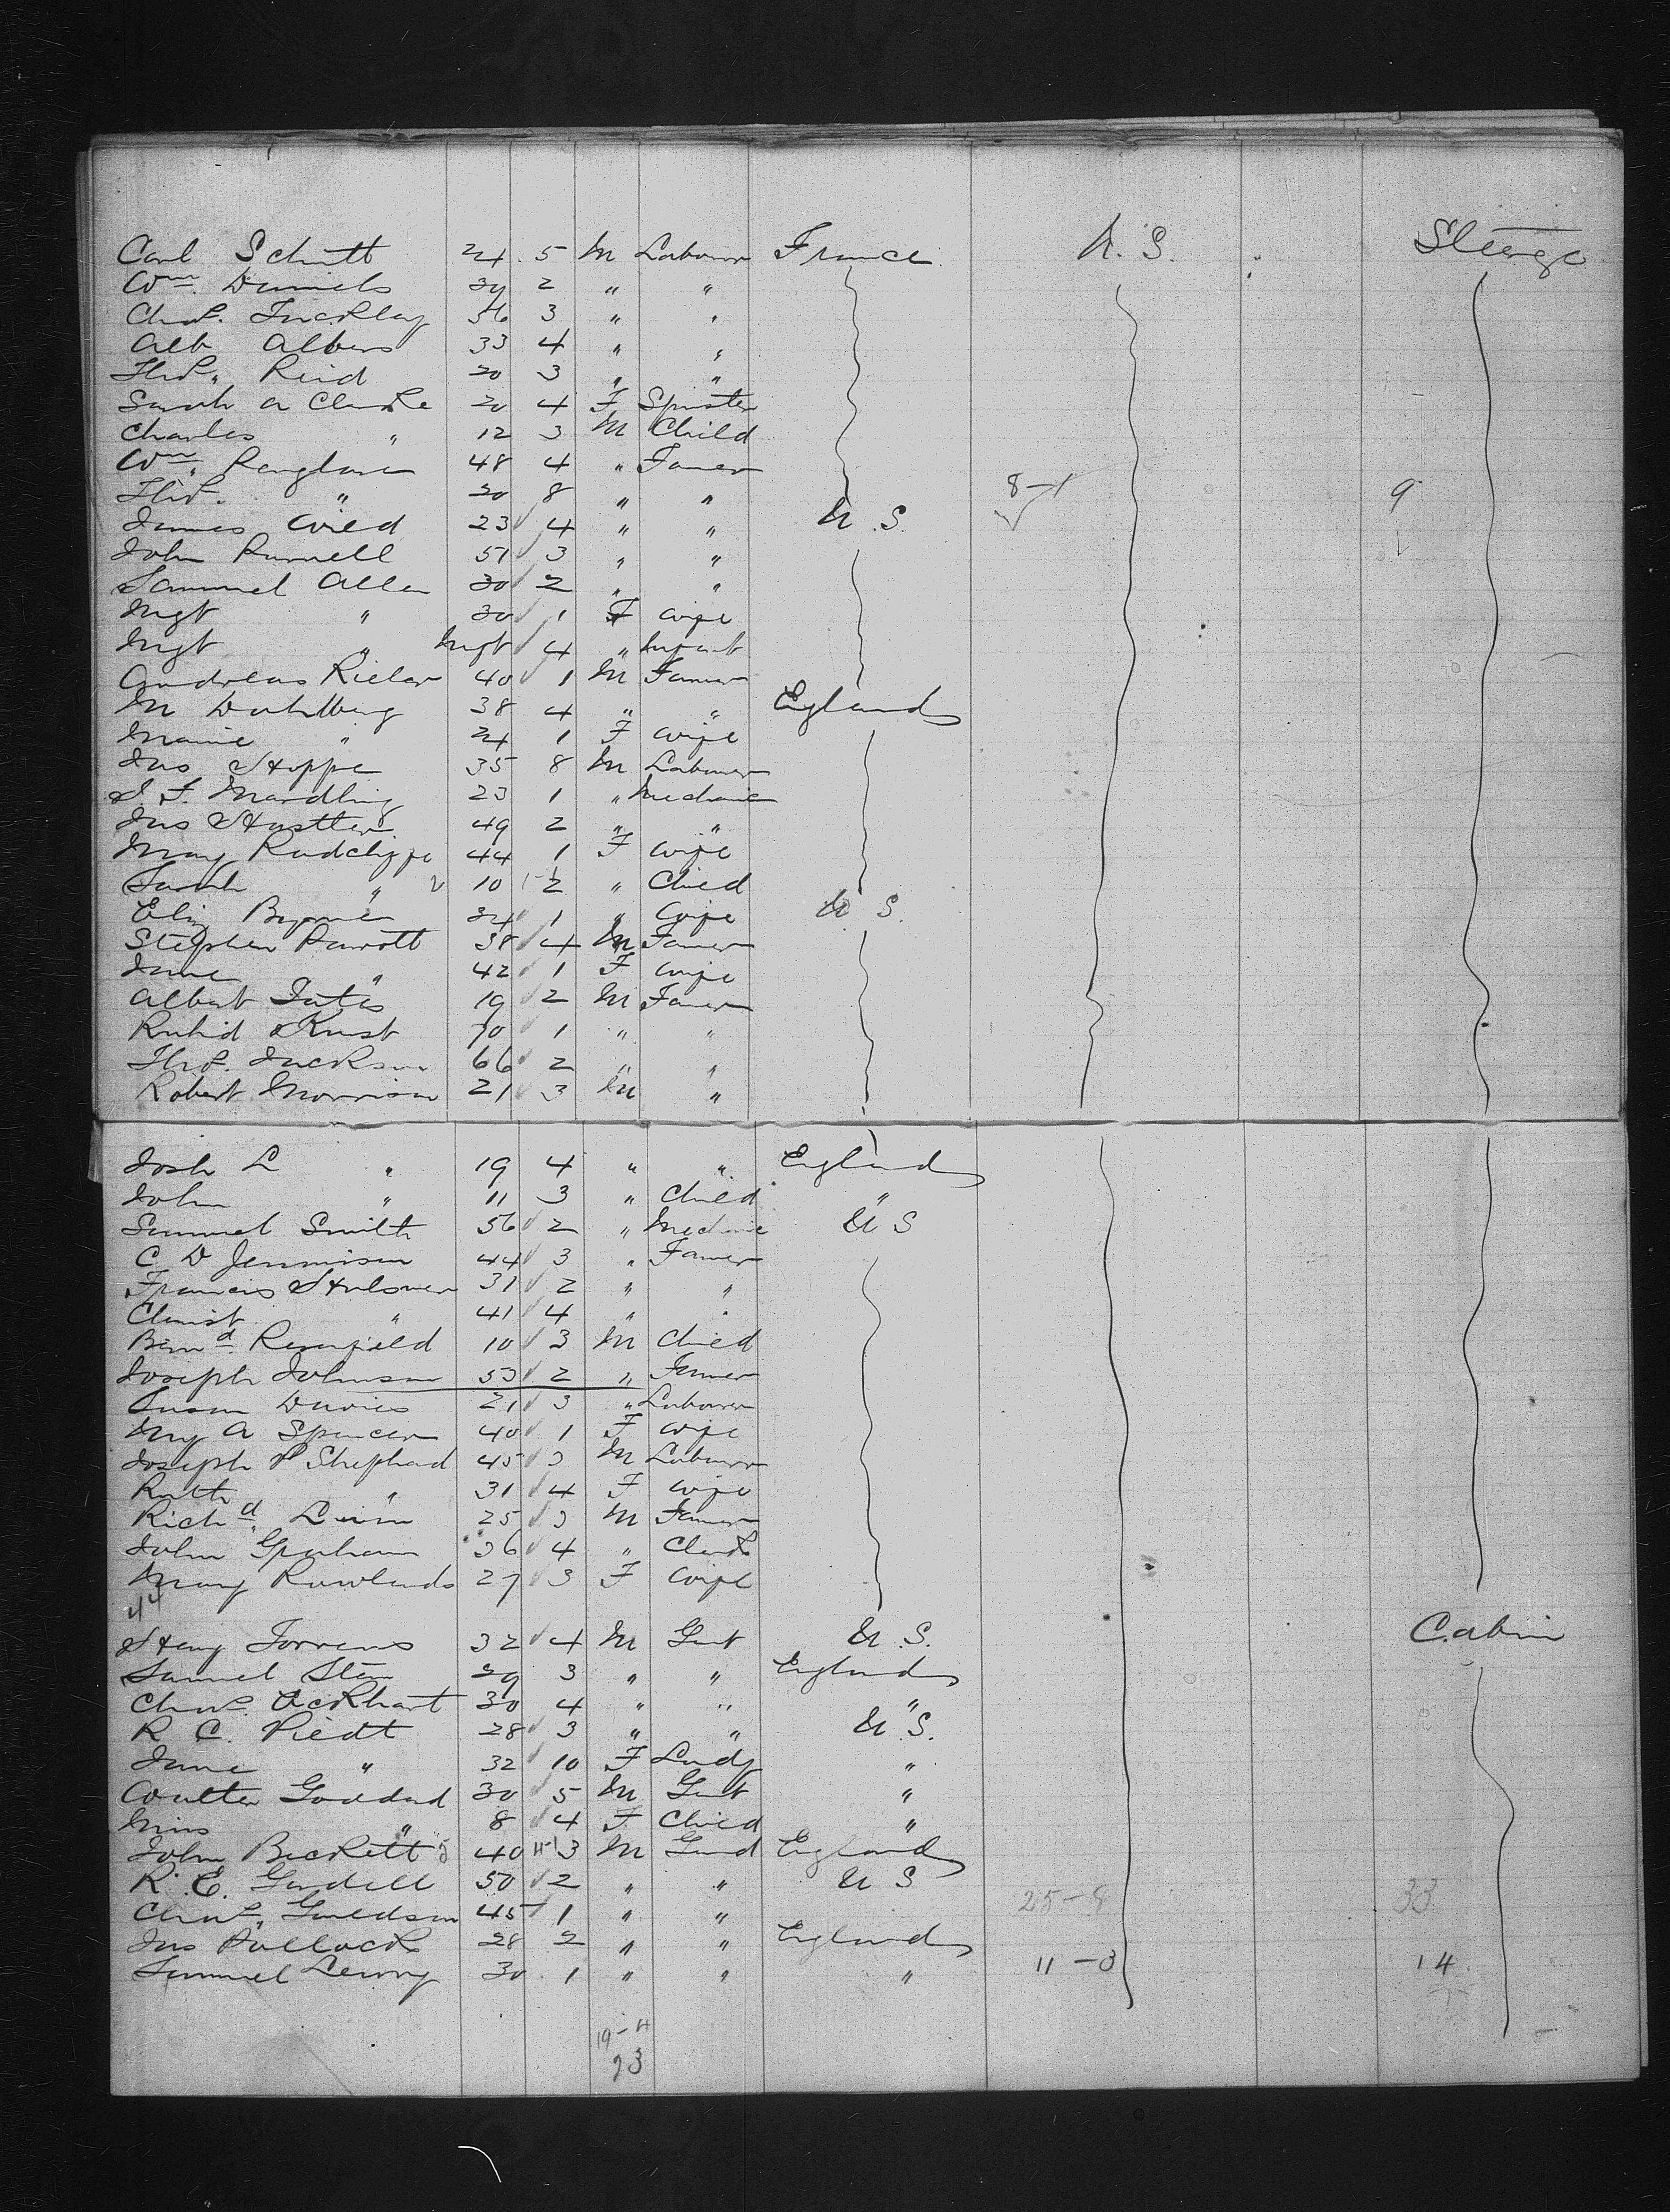 Carl Schutt 24 5 M Labourer France U.S. Steerage
Wm. Daniels 29 2 " "
Chas. Tuckley 56 3 " "
Alb Albers 33 4 " "
Thos. Reid 20 3 " "
Sarah A Clarke 20 4 F Spinster
Charles " 12 3 M Child
Wm. 48 4 " Farmer
Thos. " 20 8 " " 8-1 9
James Wild 23 4 " " U.S.
John Purnell 51 3 " "
Sammuel Allen 30 2 " "
Mgt " 30 1 F Wife
Mgt " Infant
Andreas 40 1 M Farmer
M Dahlberg 38 4 " " England
Mamie " 24 1 F Wife
Jas Hoppe 35 8 M Labourer
J. F. Mardling 23 1 " Mechanic
Jas Hustler 49 2 " "
Mary Radcliffe 44 1 F Wife
Sarah " 10 2 " Child
Eliz Byrne 34 1 " Wife U.S.
Stephen Parrott 38 4 M Farmer
Jane " 42 1 F Wife
Albert 19 2 M Farmer
70 1 " "
Thos. Jackson 66 2 " "
Robert Morrison 21 3 M "
Josh L " 19 4 " " England
John " 11 3 " Child "
Samuel Smith 56 2 " Mechanic U S
C D Jennison 44 3 " Farmer
Francis 31 2 " "
Christ " 41 4 " "
Bernd. Rosenfield 10 3 M Child
Joseph Johnson 53 2 " Farmer
Susan Davies 21 3 " Labourer
Mry A Spencer 40 1 F Wife
Joseph P Shephard 45 3 M Labourer
Ruth " 31 4 F Wife
Richd. 25 3 M Farmer
John Graham 36 4 " Clerk
Mary Rowlands 27 3 F Wife
44
Henry Torrens 32 4 M Gent U.S. Cabin
Samuel 29 3 " " England
Chas. Eckhart 30 4 " " "
R C. Piedt 28 3 " " U.S.
Jane " 32 10 F Lady "
Walter Goddard 30 5 M Gent "
Miss " 8 4 F Child "
John Beckett 40 3 M England
R. E. 50 2 " " U S
Chas. 45 1 " " 25-9 33
Jas Pollock 28 2 " " England
Samuel 30 1 " " " 11-3 14
19-4
23